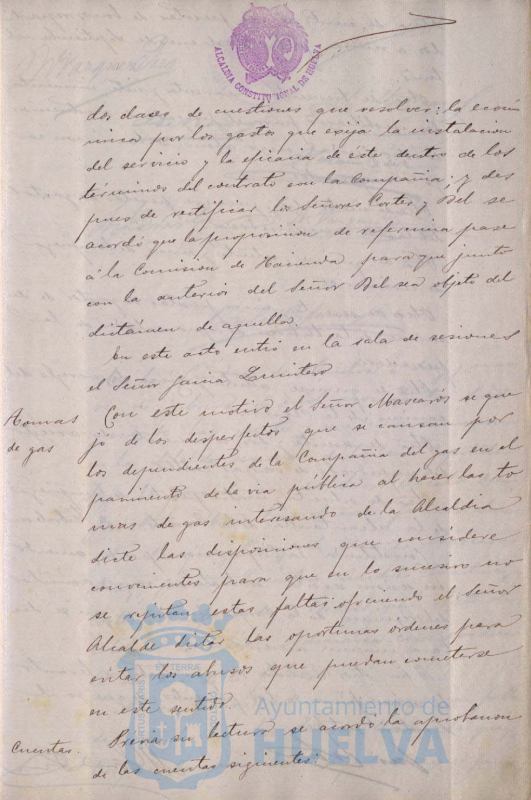 ALCALDIA CONSTITUCIONAL DE HUELVA
dos clases de cuestiones que resolver: la econó
mica por los gastos que exija la instalacion
del servicio y la eficacia de éste dentro de los
términos del contrato con la Compañia; y des
pues de rectificar los Señores Cortes y Bel se
acordó que la proposicion de referencia pase
á la Comision de Hacienda para que junto
con la anterior del Señor Bel sea objeto del
dictámen de aquella.
En este acto entró en la sala de sesiones
el Señor Garcia Quintero
Tomas
de gas
Con este motivo el Señor Mascarós se que
jó de los desperfectos que se causan por
los dependientes de la Compañia del gas en el
pavimento de la via pública al hacer las to
mas de gas interesando de la Alcaldia
dicte las disposiciones que considere
convenientes para que en lo sucesivo no
se repitan estas faltas ofreciendo el Señor
Alcalde dictar las oportunas órdenes para
evitar los abusos que puedan cometerse
en este sentido.
Cuentas.
Prévia su lectura se acordó la aprobacion
de las cuentas siguientes:
Ayuntamiento de
HUELVA